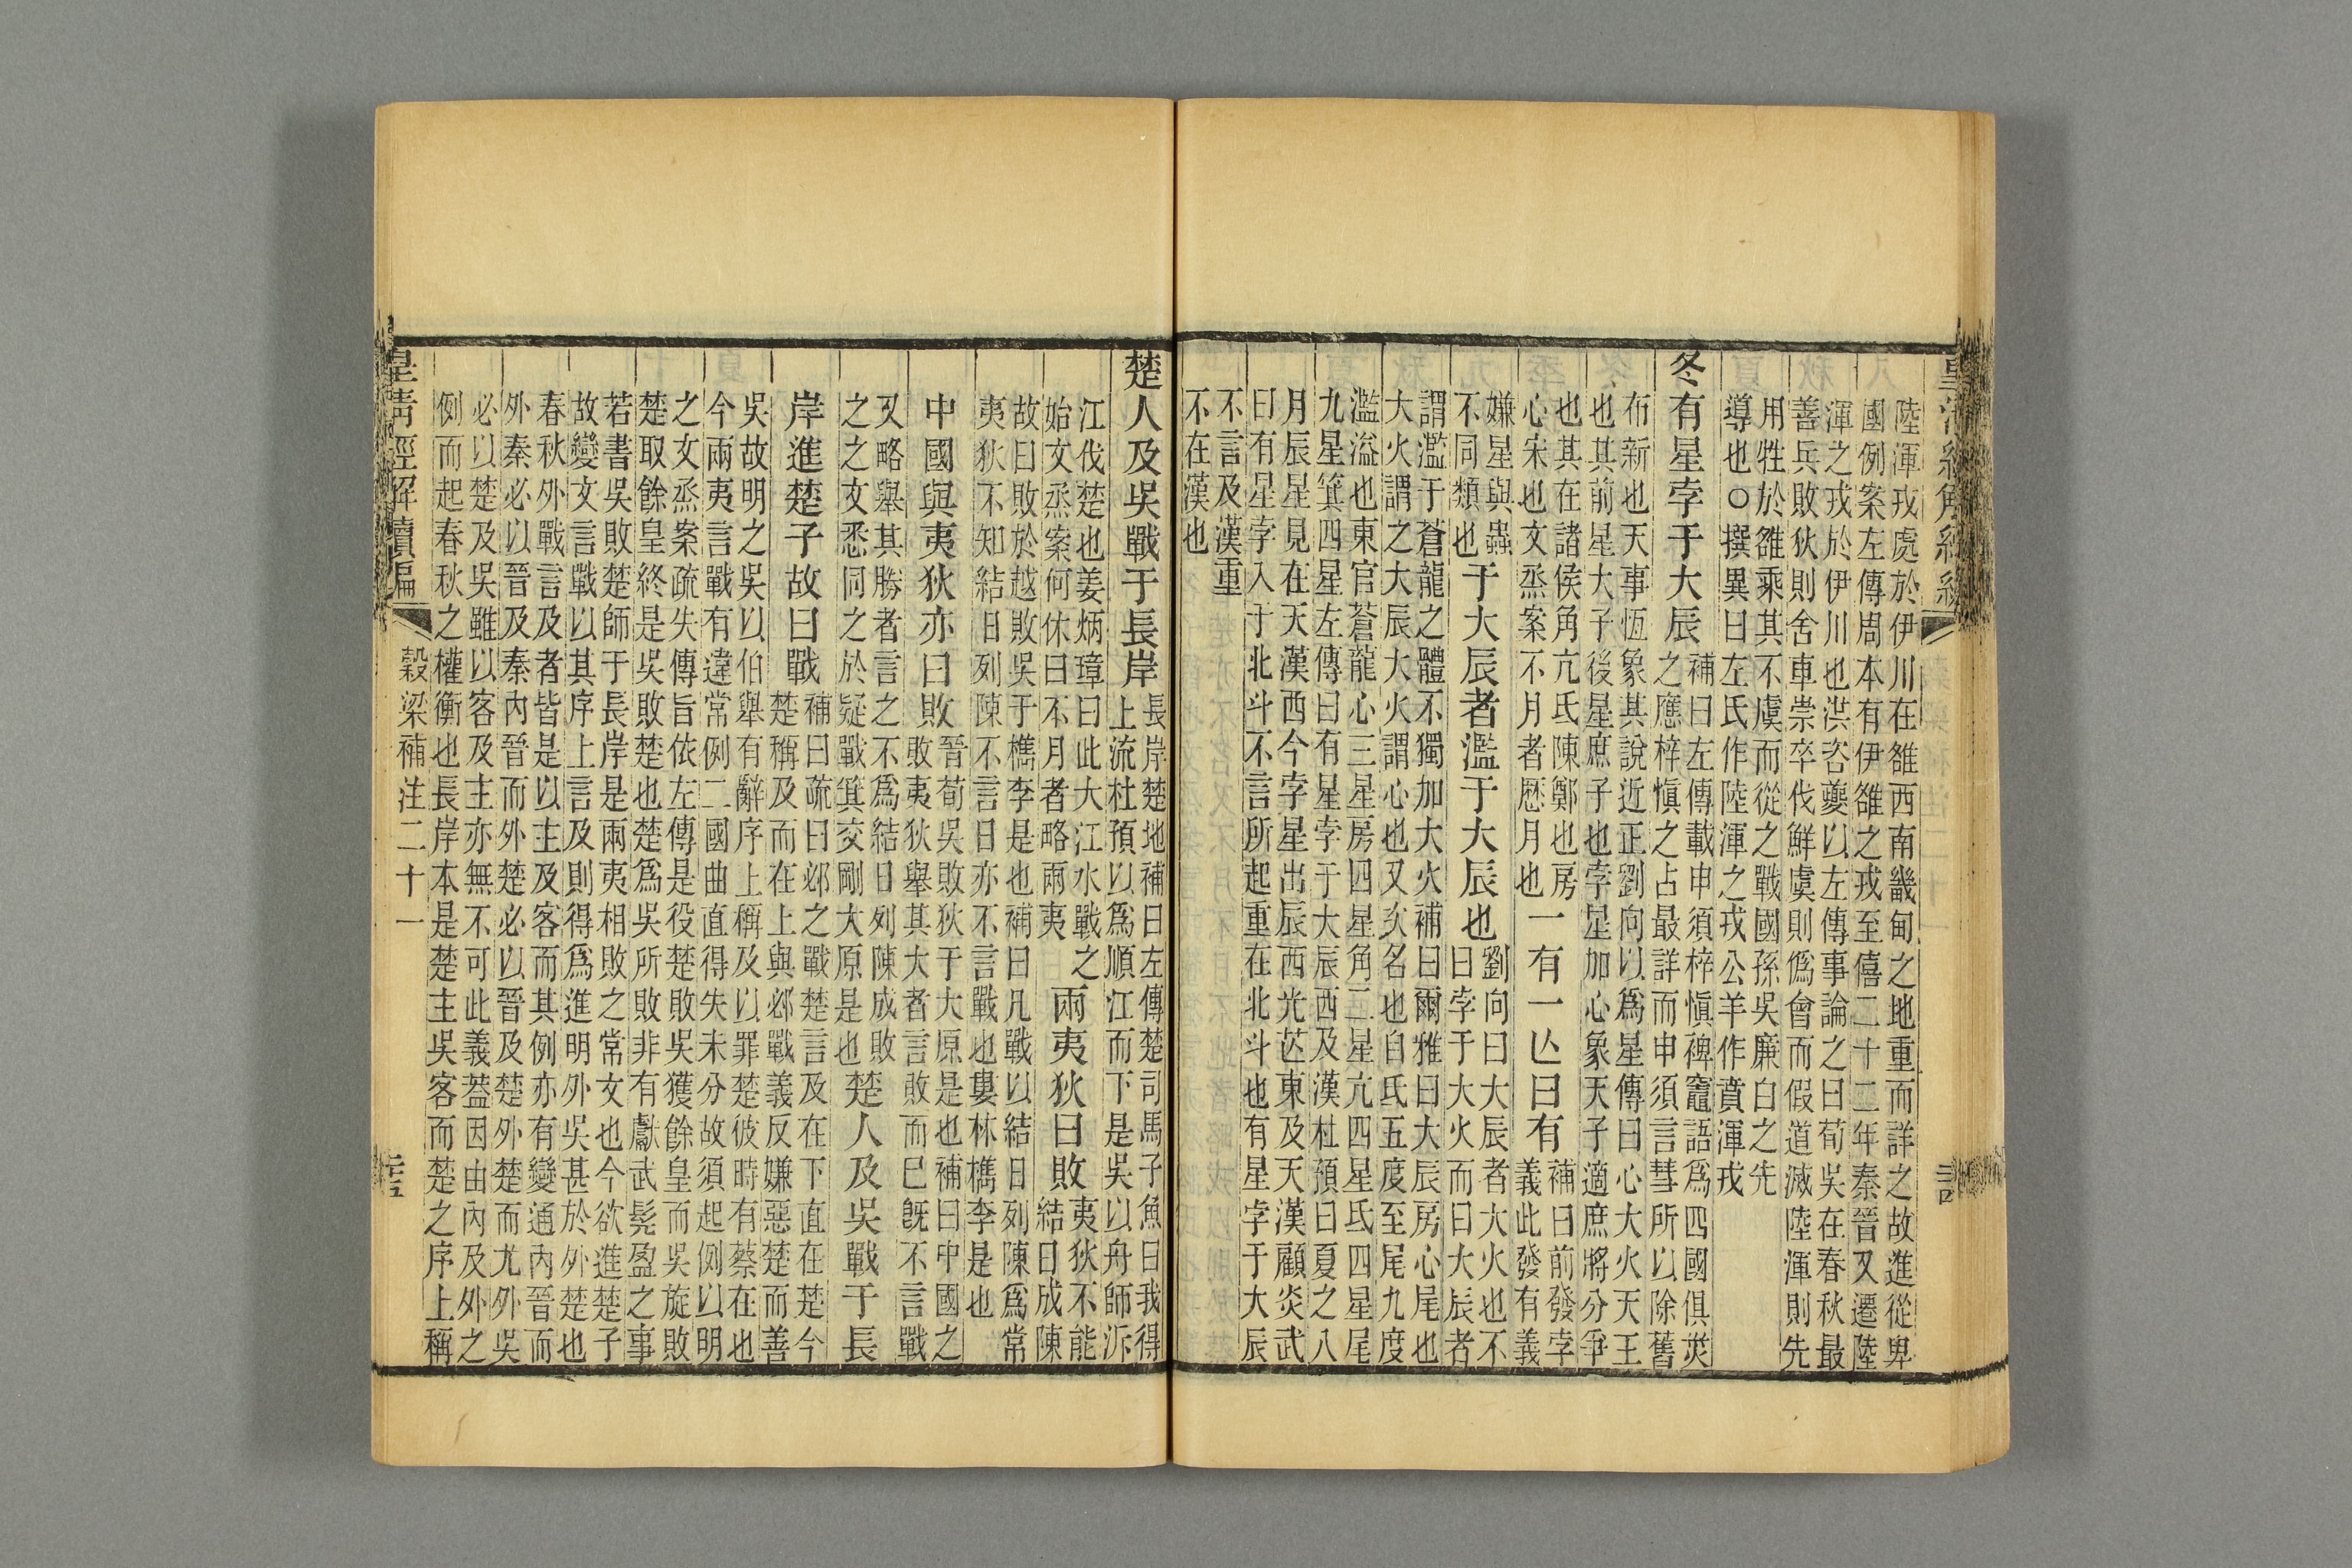 陸渾戎處於伊川在雒西南畿甸之地重而詳之故進從卑
國例案左傳周本有伊雒之戎至僖二十二年秦晉又遷陸
渾之戎於伊川也洪咨夔以左傳事論之曰荀吳在春秋最
善兵敗狄則舍車崇卒伐鮮虞則僞會而假道滅陸渾則先
用牲於雒乘其不虞而從之戰國孫吳廉白之先
導也○撰異曰左氏作陸渾之戎公羊作賁渾戎
冬有星孛于大辰
補曰左傳載申須梓愼裨竈語爲四國俱災
之應梓愼之占最詳而申須言彗所以除舊
布新也天事恆象其說近正劉向以爲星傳曰心大火天王
也其前星大子後星庶子也孛星加心象天子適庶將分爭
也其在諸侯角亢氐陳鄭也房
心宋也文烝案不月者厯月也
一有一亾曰有
補曰前發孛
義此發有義
嫌星與蟲
不同類也
于大辰者濫于大辰也
劉向曰大辰者大火也不
曰孛于大火而曰大辰者
謂濫于蒼龍之體不獨加大火補曰爾雅曰大辰房心尾也
大火謂之大辰大火謂心也又亥名也自氐五度至尾九度
濫溢也東官蒼龍心三星房四星角二星亢四星氐四星尾
九星箕四星左傳曰有星孛于大辰西及漢杜預曰夏之八
月辰星見在天漢西今孛星出辰西光芒東及天漢顧炎武
曰有星孛入于北斗不言所起重在北斗也有星孛于大辰
不言及漢重
不在漢也
楚人及吳戰于長岸
長岸楚地補曰左傳楚司馬子魚曰我得
上流杜預以爲順江而下是吳以舟師泝
江伐楚也姜炳璋曰此大江水戰之
始文烝案何休曰不月者略兩夷
兩夷狄曰敗
夷狄不能
結日成陳
故曰敗於越敗吳于檇李是也補曰凡戰以結日列陳爲常
夷狄不知結日列陳不言日亦不言戰也婁林檇李是也
中國與夷狄亦曰敗
晉荀吳敗狄于大原是也補曰中國之
敗夷狄舉其大者言敗而已旣不言戰
又略舉其勝者言之不爲結日列陳成敗
之之文悉同之於疑戰箕交剛大原是也
楚人及吳戰于長
岸進楚子故曰戰
補曰疏曰邲之戰楚言及在下直在楚今
楚稱及而在上與邲戰義反嫌惡楚而善
吳故明之吳以伯舉有辭序上稱及以罪楚彼時有蔡在也
今兩夷言戰有違常例二國曲直得失未分故須起例以明
之文烝案疏失傳旨依左傳是役楚敗吳獲餘皇而吳旋敗
楚取餘皇終是吳敗楚也楚爲吳所敗非有獻武髡盈之事
若書吳敗楚師于長岸是兩夷相敗之常文也今欲進楚子
故變文言戰以其序上言及則得爲進明外吳甚於外楚也
春秋外戰言及者皆是以主及客而其例亦有變通內晉而
外秦必以晉及秦內晉而外楚必以晉及楚外楚而尤外吳
必以楚及吳雖以客及主亦無不可此義葢因由內及外之
例而起春秋之權衡也長岸本是楚主吳客而楚之序上稱
皇清經解續編
穀梁補注二十一